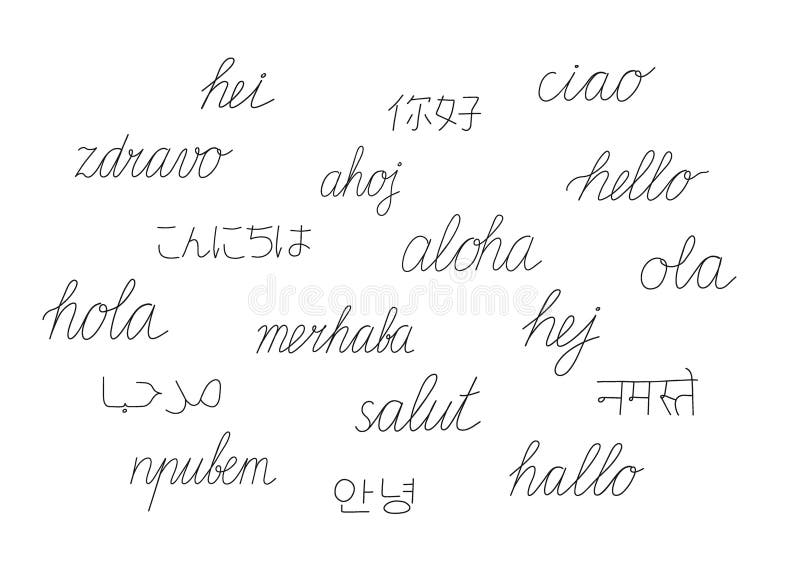 hei
ciao
你好
zdravo
ahoj
hello
こんにちは
aloha
ola
hola
merhaba
hej
مرحبا
salut
नमस्ते
привет
안녕
hallo
dreamstime